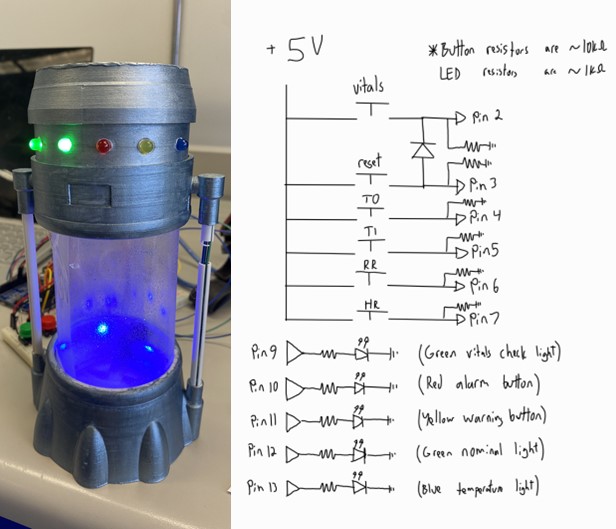 + 5V
*Button resistors are ~10kΩ
LED resistors are ~1kΩ
vitals
Pin 2
reset
Pin 3
T0
Pin 4
T1
Pin5
RR
Pin 6
HR
Pin7
Pin 9 (Green vitals check light)
Pin 10 (Red alarm button)
Pin 11 (Yellow warning button)
Pin 12 (Green nominal light)
Pin 13 (Blue temperature light)